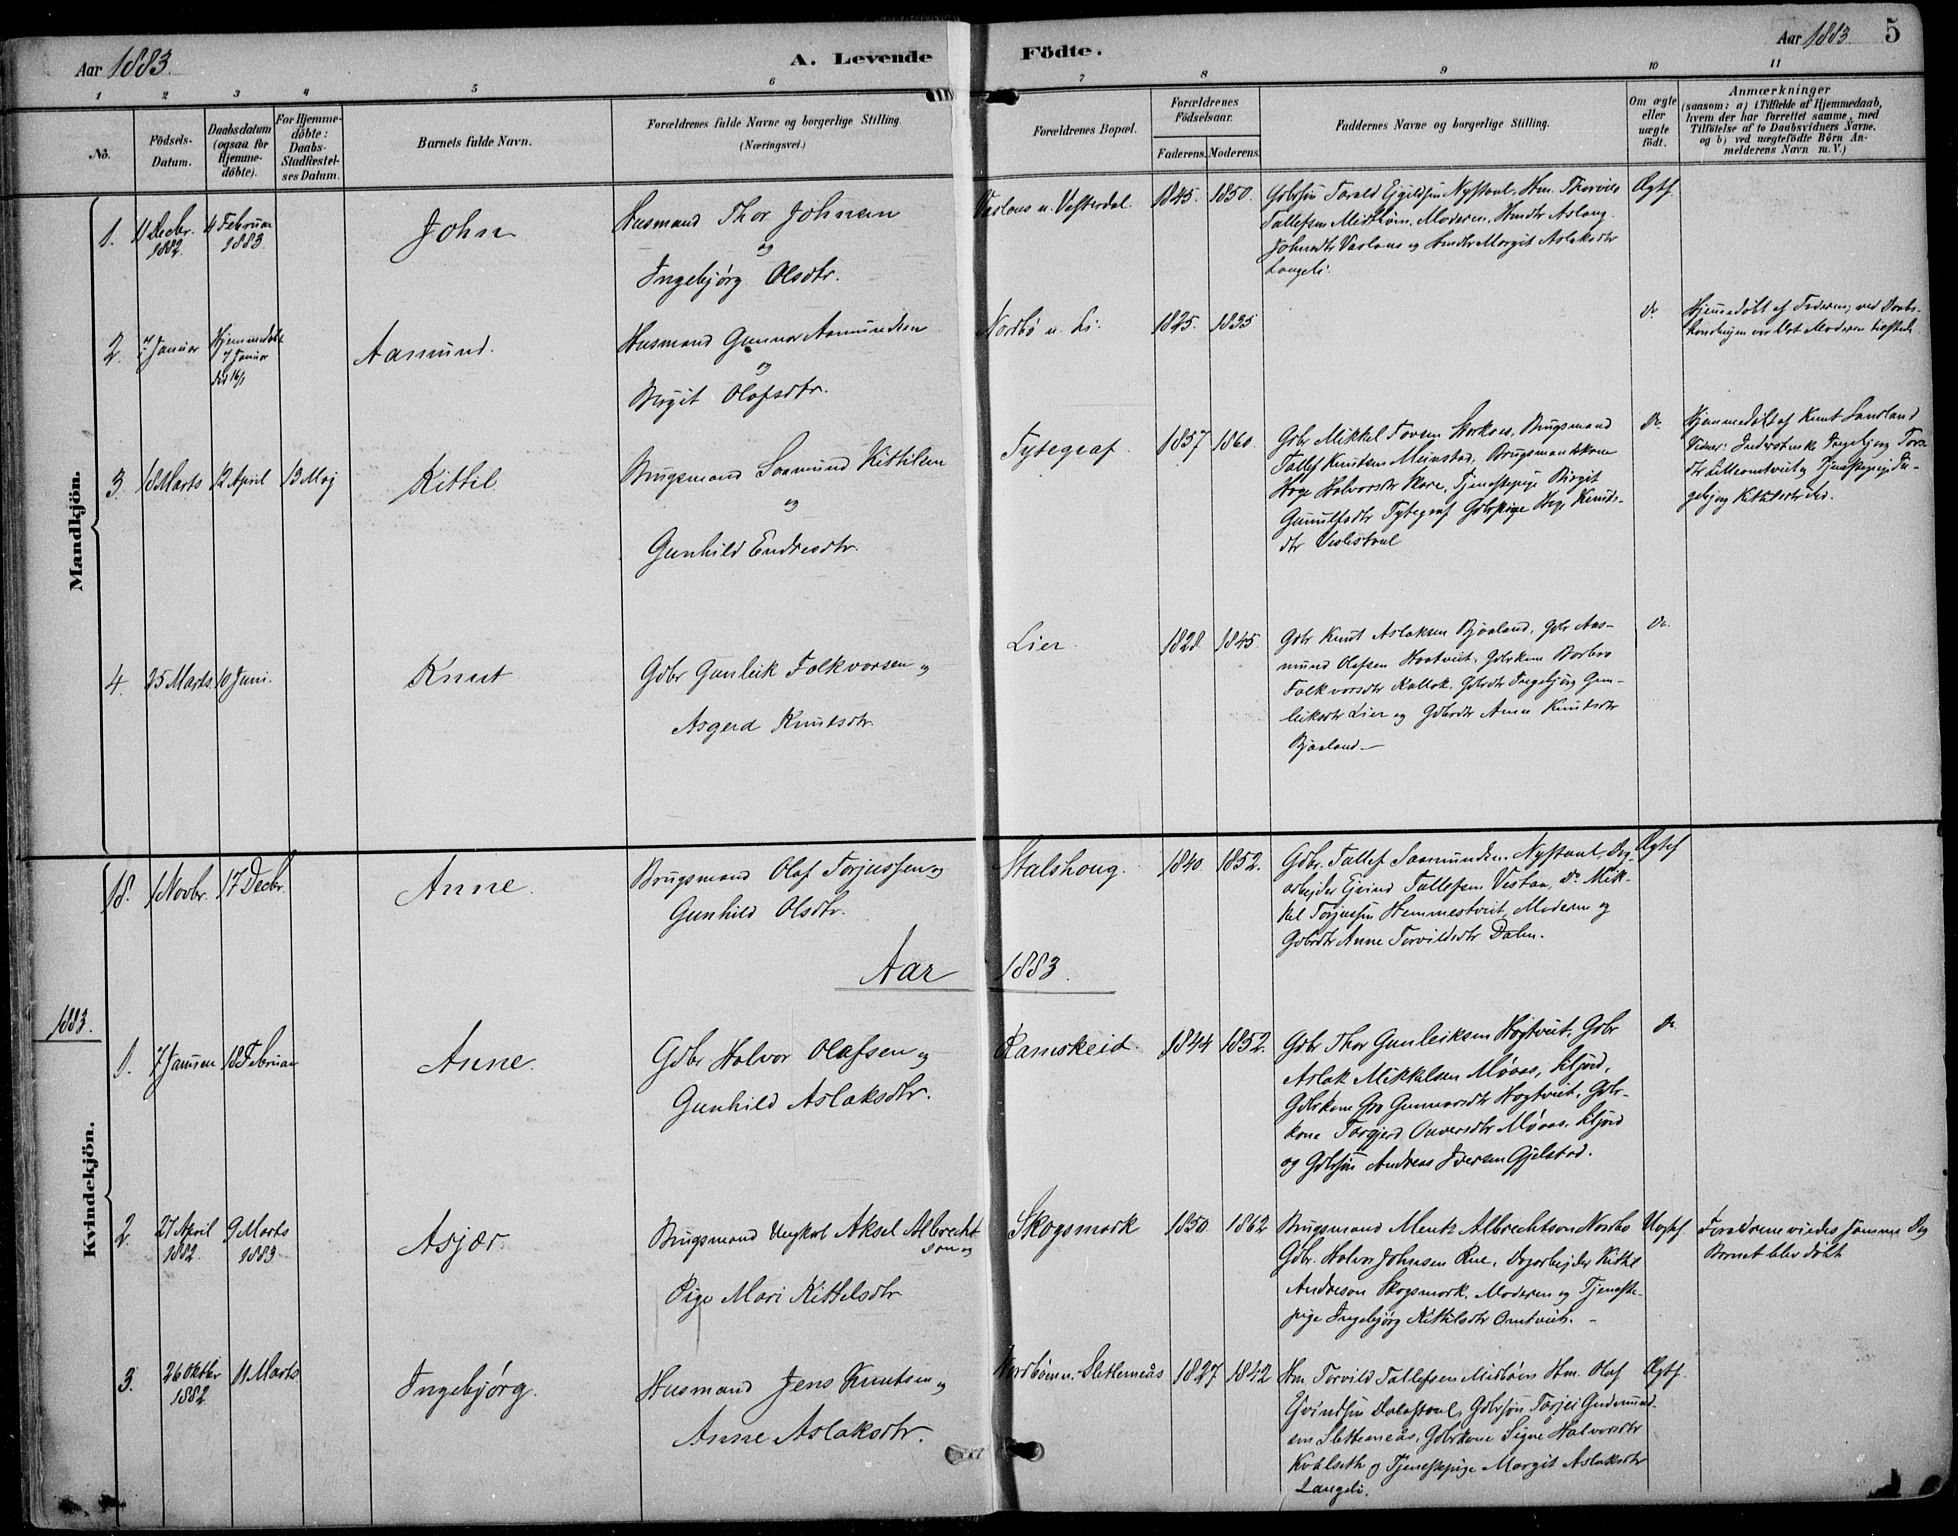 Aar 1883.
A. Levende Födte.
Aar 1883
5
1 2 3 4 5 6 7 8 9 10 11
No.
Födsels-
Datum.
Daabsdatum
(ogsaa for
Hjemme-
döbte).
For Hjemme-
döbte:
Daabs-
Stadfæstel-
ses Datum.
Barnets fulde Navn.
Forældrenes fulde Navne og borgerlige Stilling.
(Næringsvei.)
Forældrenes Bopæl.
Forældrenes
Födselsaar.
Faderens.
Moderens.
Faddernes Navne og borgerlige Stilling.
Om ægte
eller
uægte
födt.
Anmærkninger
(saasom: a) i Tilfælde af Hjemmedaab,
hvem der har forrettet samme, med
Tilföielse af to Daabsvidners Navne,
og b) ved uægtefödte Börn An-
melderens Navn m. V.)
Mandkjön.
1.
11 Decbr.
1882.
4 Februar
1883
John
Husmand Thor Johnsen
og
Ingebjørg Olsdtr.
Vaslaus u. Vesterdal.
1845.
1850.
Tallefsen Midbøen, Moderen,
Johnsdtr Vaslaus og Margit Aslaksdtr
Langeli.
Ægtef.
2.
7 Januar
Hjemmedøbt
7 Januar
død 16/1
Aamund.
Husmand Gunnar Aamundsen
og
Birgit Olafsdtr.
Nordbø u. Li.
1825.
1835
Do
Hjemmedøbt af Faderen; ved Daabs-
handlingen var blot Moderen tilstede.
3.
18 Marts
12 April
13 Maj
Kittil
Brugsmand Saamund Kittilsen
og
Gunhild Endresdtr.
Tytegraf
1857
1860.
Gbr Mikkel Tovsen Storkaas, Brugsmand
Tallef Knutsen Meinstad, Brugsmandskone
Hæge Halvorsdtr Skare, Tjenestepige Birgit
Gunulfsdtr Tytegraf Gbrpige Hæge Knuds-
dtr
Do.
Hjemmedøbt af Knut Sandland
Ingebjørg Tors-
dtr og Tjenestepige In-
gebjørg Kittilsdtr
4.
25 Marts.
10 Juni.
Knut
Gdbr Gunleik Folkvorsen og
Asgerd Knutsdtr.
Lier.
1828.
1845.
Gdbr Knut Aslaksen Bjaaland, Gdbr Aas-
mund Olafsen Haatveit, Gdbrkone Barbro
Folkvorsdtr Kallak, Gdbrdtr Ingebjørg Gun-
leiksdtr Lier og Gdbrdtr Anne Knutsdtr
Bjaaland.—
Do.
18.
1 Novbr.
17 Decbr.
Anne.
Brugsmand Olaf Torjussen og
Gunhild Olsdtr.
Stalshoug.
1840.
1852.
Gdbr. Tallef Saamundsen Nystaul, Dag-
arbejder Ejvind Tallefsen Vestaa, Do. Mik-
kel Torjussen Hemmestveit, Moderen og
Gdbrdtr Anne Torvildsdtr Dalen.
Ægtef
Aar 1883.
1883.
Kvindekjön.
1.
7 Januar
18 Februar
Anne.
Gdbr Halvor Olafsen og
Gunhild Aslaksdtr.
Ramskeid.
1844
1852.
Gdbr Thor Gunleiksen Høgtveit, Gdbr
Aslak Mikkelsen Moaas, Kiljord,
Gdbrkone Gro Gunnarsdtr Høgtveit, Gdbr-
kone Torgjerd Moaas, Kiljord
og Gdbrsøn Andreas Iversen Gjelstad.
Do.
2.
27 April
1882.
9 Marts
1883.
Asjær.
Brugsmand Ungkarl Aksel Albrecht-
son og
Pige Mari Kittelsdtr
Skogsmork
1850.
1862
Brugsmand Mentz Albrechtson Norsbo
Gdbr. Halvor Johnsen Rue, Dagarbejder Kittil
Andreson Skogsmork. Moderen og Tjeneste-
pige Ingebjørg Kittilsdtr Omtveit. —
Uægtef
Forældrene viedes samme Dag
Barnet blev døbt
3.
26 Oktbr
1882
11 Marts.
Ingebjørg.
Husmand Jens Knutsen og
Anne Aslaksdtr.
Nordbøen u. Slettemeås
1827
1842
Hm Torvild Tallefsen Midbøen Hm. Olaf
Ejvindsen Gdbrsøn Torjei Gudmund-
sen Slettemeås, Gdbrkone Signe Halvorsdtr
Kvalseth og Tjenestepige Margit Aslaksdtr
Langeli.
Ægtef.